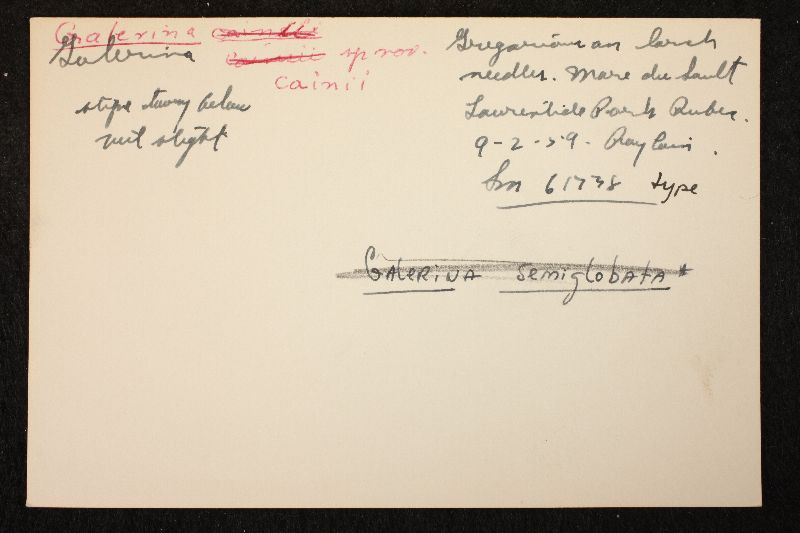 Galerina
Galerina
sp nov.
cainii
stipe tawny below
veil slight
Gregarious on larch
needles. Mare du Sault
Laurentide Park Quebec.
9-2-59. Roy Cain.
Sm 61738 type
GALERINA SEMIGLOBATA